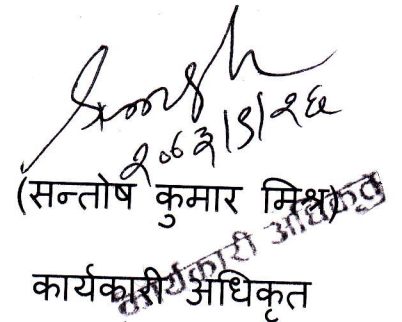 २०७३/९/२६
(सन्तोष कुमार मिश्र)
कार्यकारी अधिकृत
कार्यकारी अधिकृत